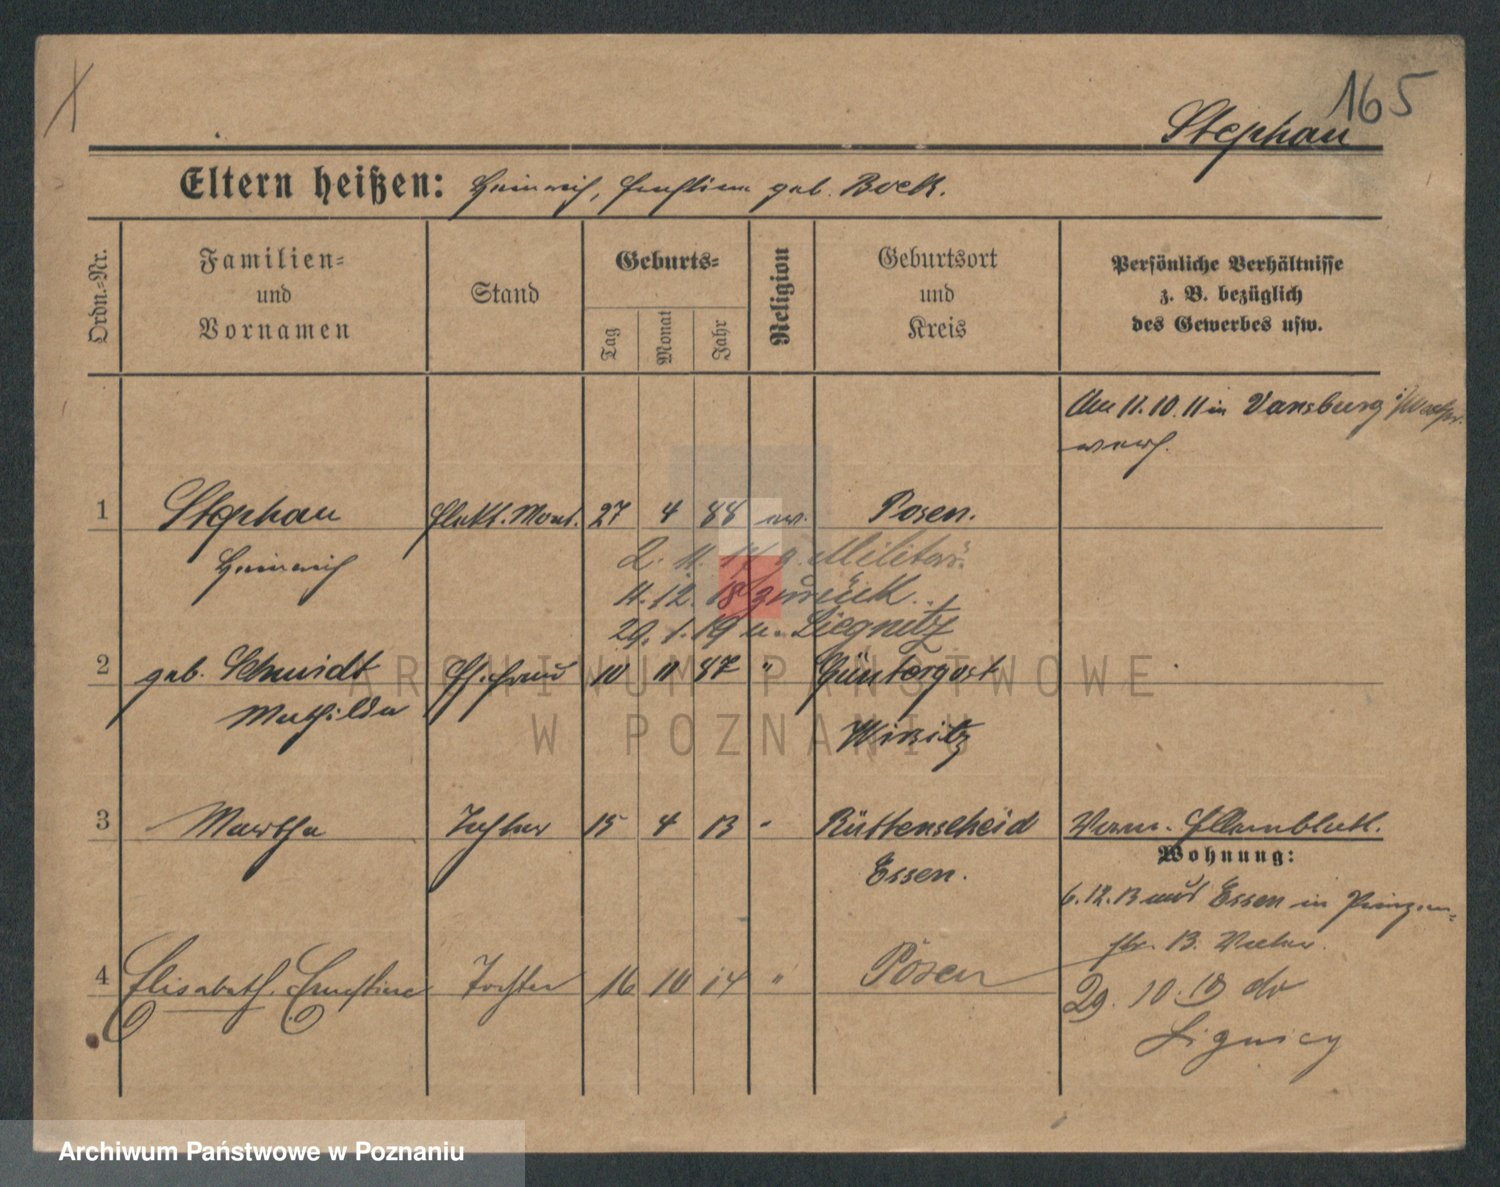 165
Stephan
Eltern heißen: Heinrich, Ernstine geb. Bock.
Ordn.-Nr.
Familien-
und
Vornamen
Stand
Geburts-
Tag
Monat
Jahr
Religion
Geburtsort
und
Kreis
Persönliche Verhältnisse
z. B. bezüglich
des Gewerbes usw.
Am 11.10.11 in Vansburg
verh.
1 Stephan Elekt. Mont. 27 4 88 ev. Posen.
Heinrich
2. 11. 17 z. Militär.
11.12.18 zurück.
29. 1. 19 n. Liegnitz
2 geb. Schmidt Ehefrau 10 11 87 " Güntergost
Mathilde
Wirsitz
3 Martha Tochter 15 4 13 " Rüttenscheid
Essen.
Wohnung:
6.12.13 aus Essen in Prinzen-
str. 13.
4 Elisabeth Ernstine Tochter 16 10 14 " Posen
29. 10. 19 do
Lignicy
ARCHIWUM PAŃSTWOWE
W POZNANIU
Archiwum Państwowe w Poznaniu